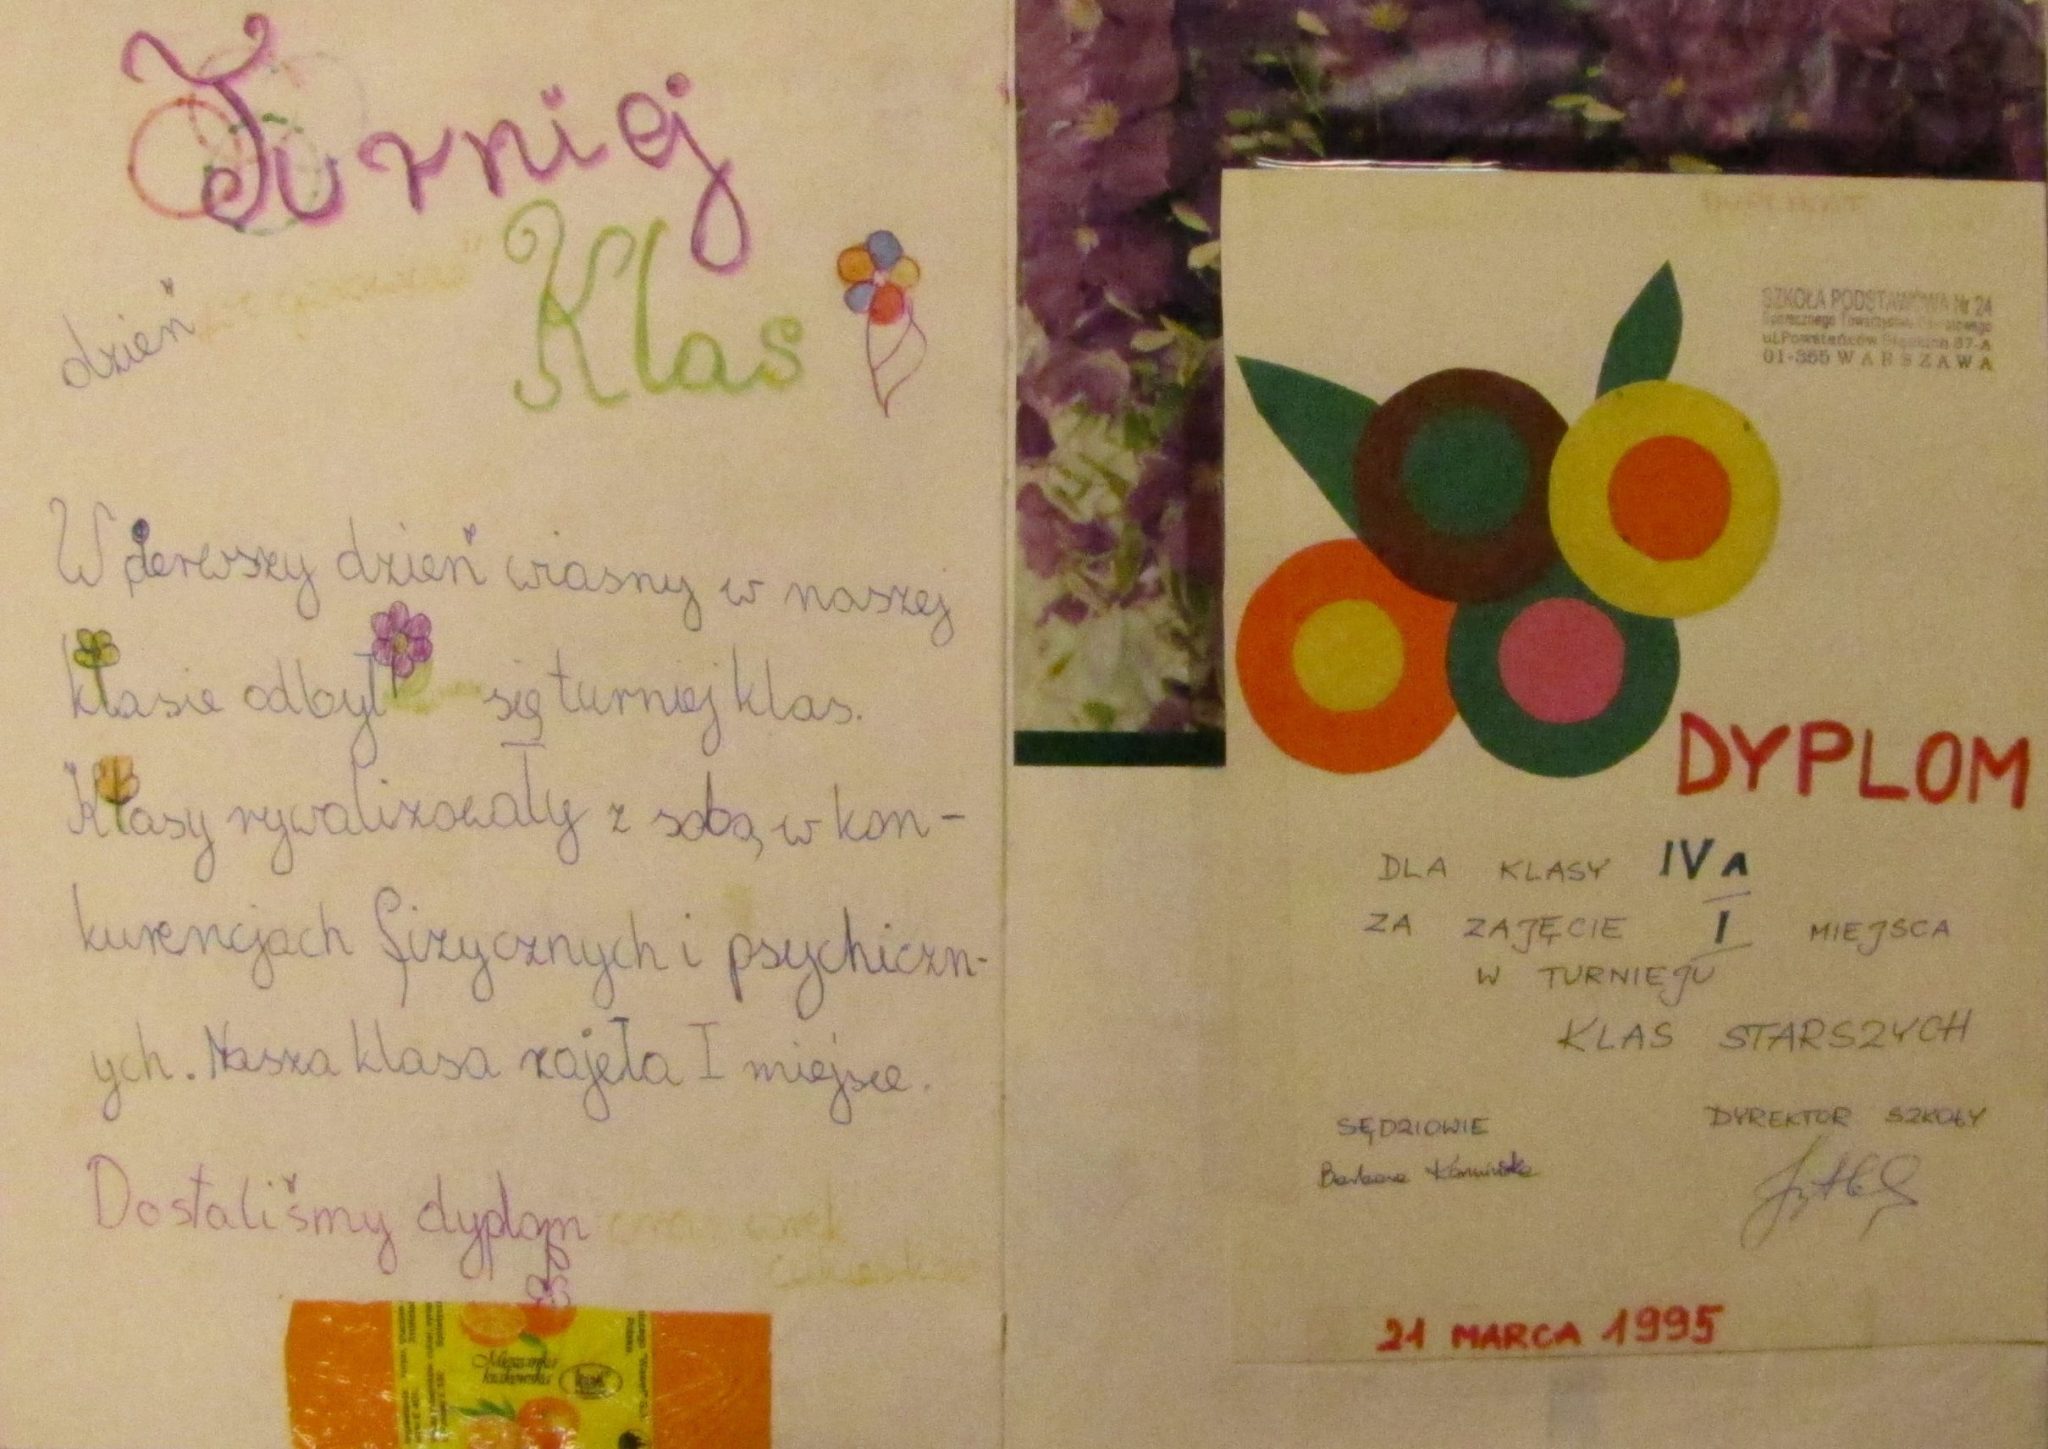 Turniej
Klas
dzień
W pierwszy dzień wiasny w naszej
klasie odbył się turniej klas.
Klasy rywalizowały z sobą w kon-
kurencjach fizycznych i psychiczn-
ych. Nasza klasa zajęła I miejsce.
Dostaliśmy dyplom
Mieszanka
krakowska
SZKOŁA PODSTAWOWA Nr 24
Społecznego Towarzystwa Oświatowego
ul. Powstańców Śląskich 67-A
01-355 WARSZAWA
DYPLOM
DLA KLASY IV A
ZA ZAJĘCIE I MIEJSCA
W TURNIEJU
KLAS STARSZYCH
SĘDZIOWIE
Barbara Kamińska
DYREKTOR SZKOŁY
21 MARCA 1995